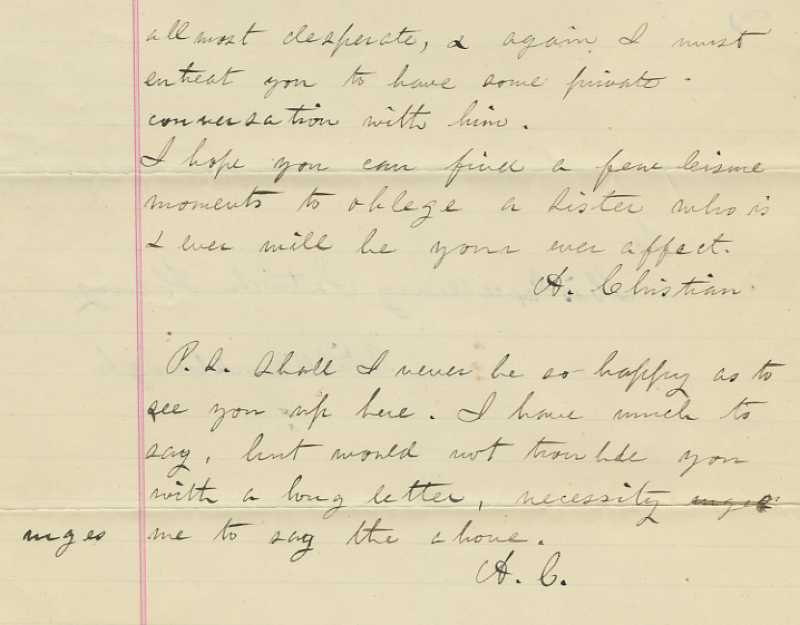 allmost desperate, & again I must
entreat you to have some private
conversation with him.
I hope you can find a few leisure
moments to oblege a sister who is
& ever will be your ever affect.
A. Christian
P.S. Shall I never be so happy as to
see you up here. I have much to
say, but would not trouble you
with a long letter, necessity urges
urges me to say the above.
A. C.